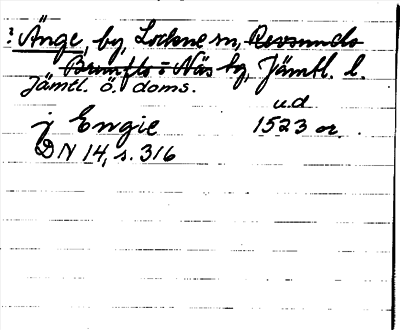 ? Änge, by, Lockne sn, Revsunds
Brunflo o Näs tg, Jämtl. l.
Jämtl. ö. doms.
u.d
j Engie 1523 or
DN 14, s. 316